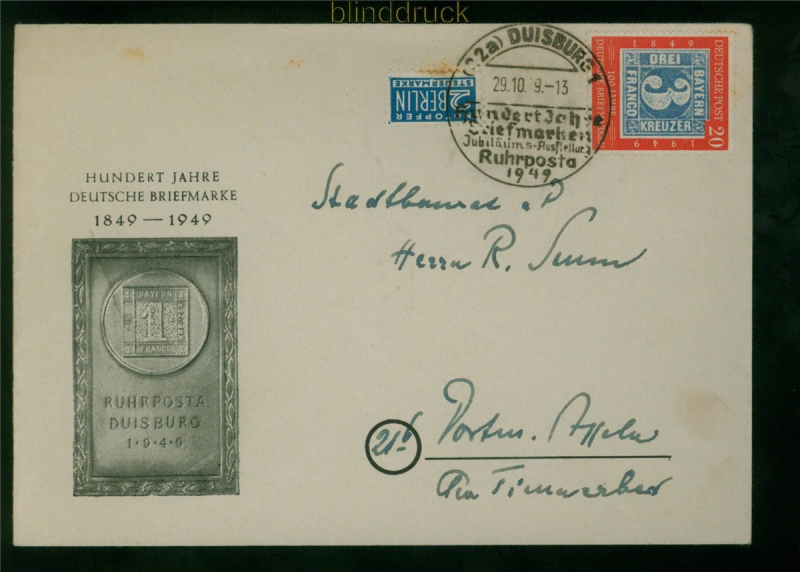 blinddruck
(22a) DUISBURG 1
29.10. 9.-13
Hundert Jahre
Briefmarken
Jubiläums-Ausstellung
Ruhrposta
1949
NOTOPFER
2 BERLIN
STEUERMARKE
1849
DEUTSCHE POST
100 JAHRE DEUTSCHE BRIEFMARKEN
DREI
FRANCO
3
BAYERN
KREUZER
1949
20
HUNDERT JAHRE
DEUTSCHE BRIEFMARKE
1849 — 1949
BAYERN
1
FRANCO
RUHRPOSTA
DUISBURG
1·9·4·9
Stadtbaurat a. D
Herrn R.
21b